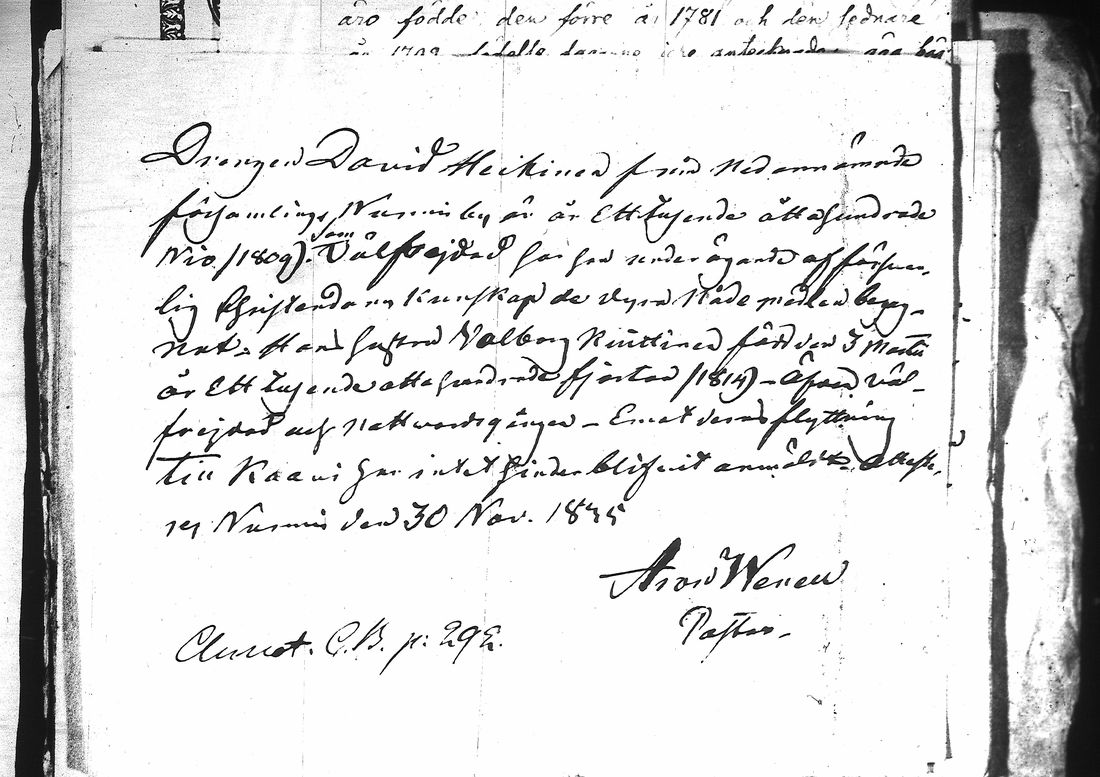 äro födde, den förre år 1781 och den sednare
år
Drengen David Heikinen från nedannämnde
församlings Nurmis by är år Ett tusende åttahundrade
Nio /1809/. som Välfrejdad har han under ägande af försvar-
lig Christendoms kunskap de dyra Nådemedlen begag-
nat. Hans hustru Valborg Kinttinen född den 3 Martii
år Ett tusende åttahundrade fjorton /1814/ - Äfven väl-
frejdad och Nattvardsgången - Emot deras flyttning
till Kaavi har intet hinder blifvit anmäldt. Atteste-
rer Nurmis den 30 Nov. 1835
Aron Wenell
Pastor.
C.B. p: 292.